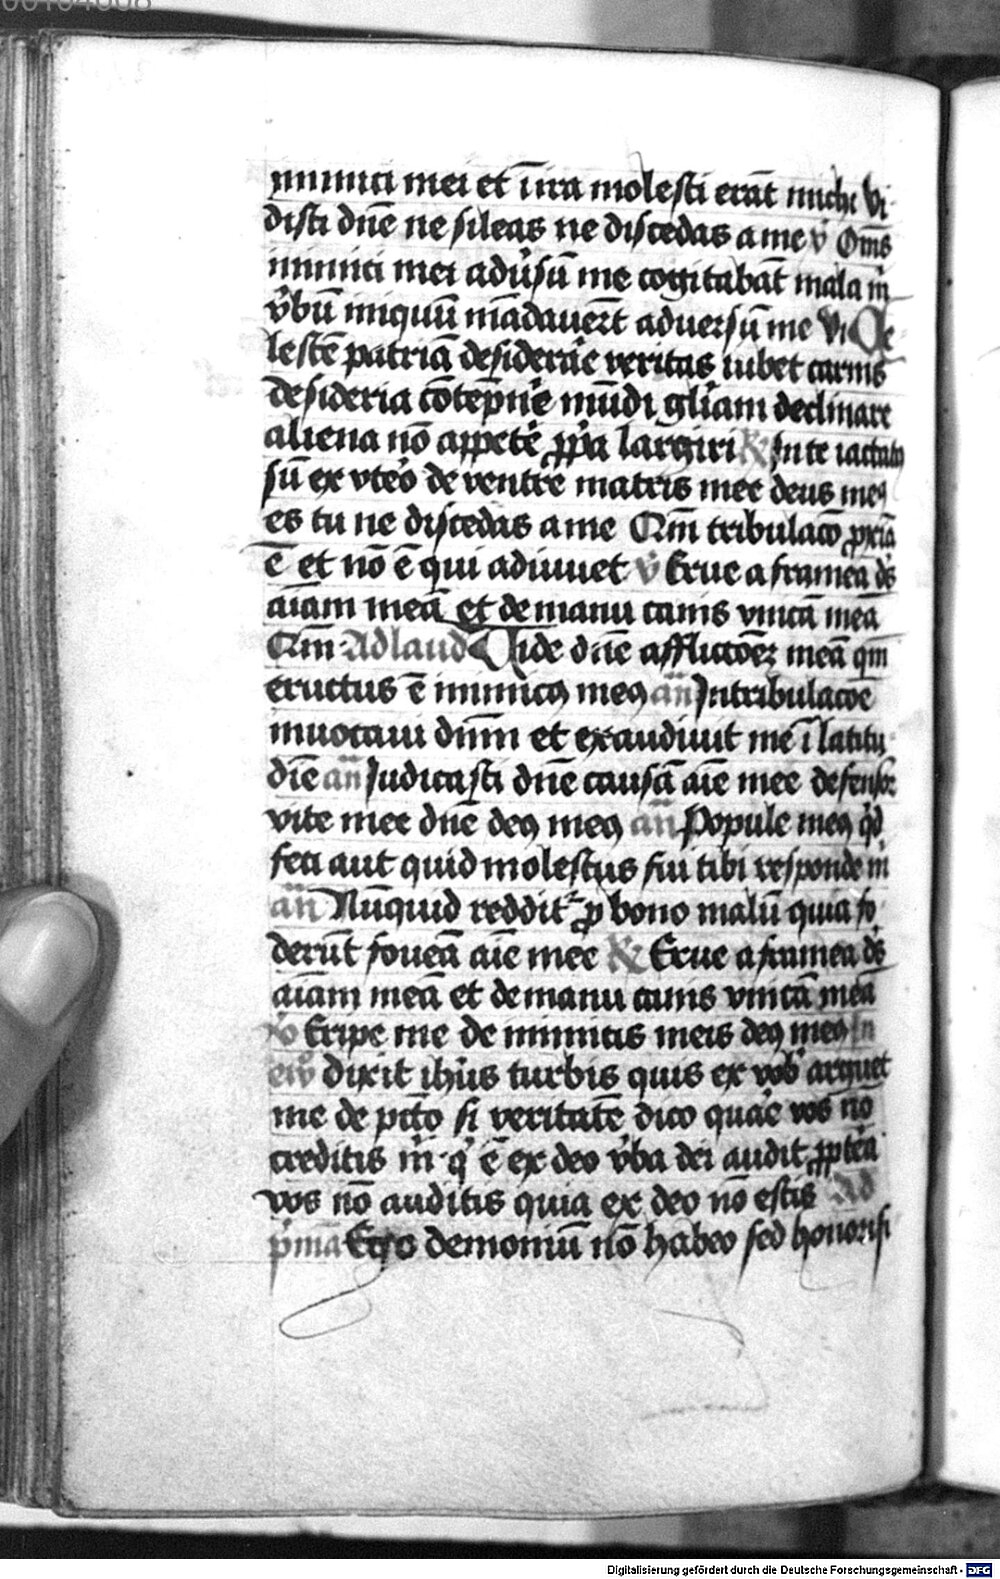 inimici mei et i ira molesti erāt michi vi
disti dn̄e ne sileas ne discedas a me v̊ Om̄s
inimici mei adūsū me cogitabāt mala in
v̄bū iniquū mādauer̄t aduersū me Vi Ce
lestē patriā desiderāe veritas iubet carnis
desideria cōtēpn̄e mūdi gl̄iam declinare
aliena nō appetē ꝓp̄a largiri R̷ In te iactatꝯ
sū ex vt̄o de ventre matris mee deus meꝯ
es tu ne discedas a me Qm̄ tribulacō ꝓxiā
ē et nō ē qui adiuuet v̊ Erue a framea ds̄
aīam meā et de manu canis vnicā meā
Qm̄ Ad laud Vide dn̄e afflictōez meā qm̄
eructus ē inimicꝯ meꝯ an̄ In tribulacōe
inuocaui dn̄m et exaudiuit me ī latitu
dīe an̄ Iudicasti dn̄e causā aīe mee defensor
vite mee dn̄e deꝯ meꝯ an̄ Popule meꝯ qͥd
feci aut quid molestus fui tibi responde m̄
an̄ Nūquid redditʳ ꝓ bono malū quia fo
derūt foueā aīe mee R̷ Erue a framea ds̄
aīam meā et de manu canis vnicā meā
v̊ Eripe me de inimicis meis deꝯ meꝯ In
ew̄ dixit ih̄us turbis quis ex vob̄ arguet
me de pctō si veritatē dico quāe vos nō
creditis m̄ qͥ ē ex deo v̄ba dei audit ꝓptēa
vos nō auditis quia ex deo nō estis Ad
pͥmā Ego demoniū nō habeo sed honorifi
00104008
Digitalisierung gefördert durch die Deutsche Forschungsgemeinschaft - DFG